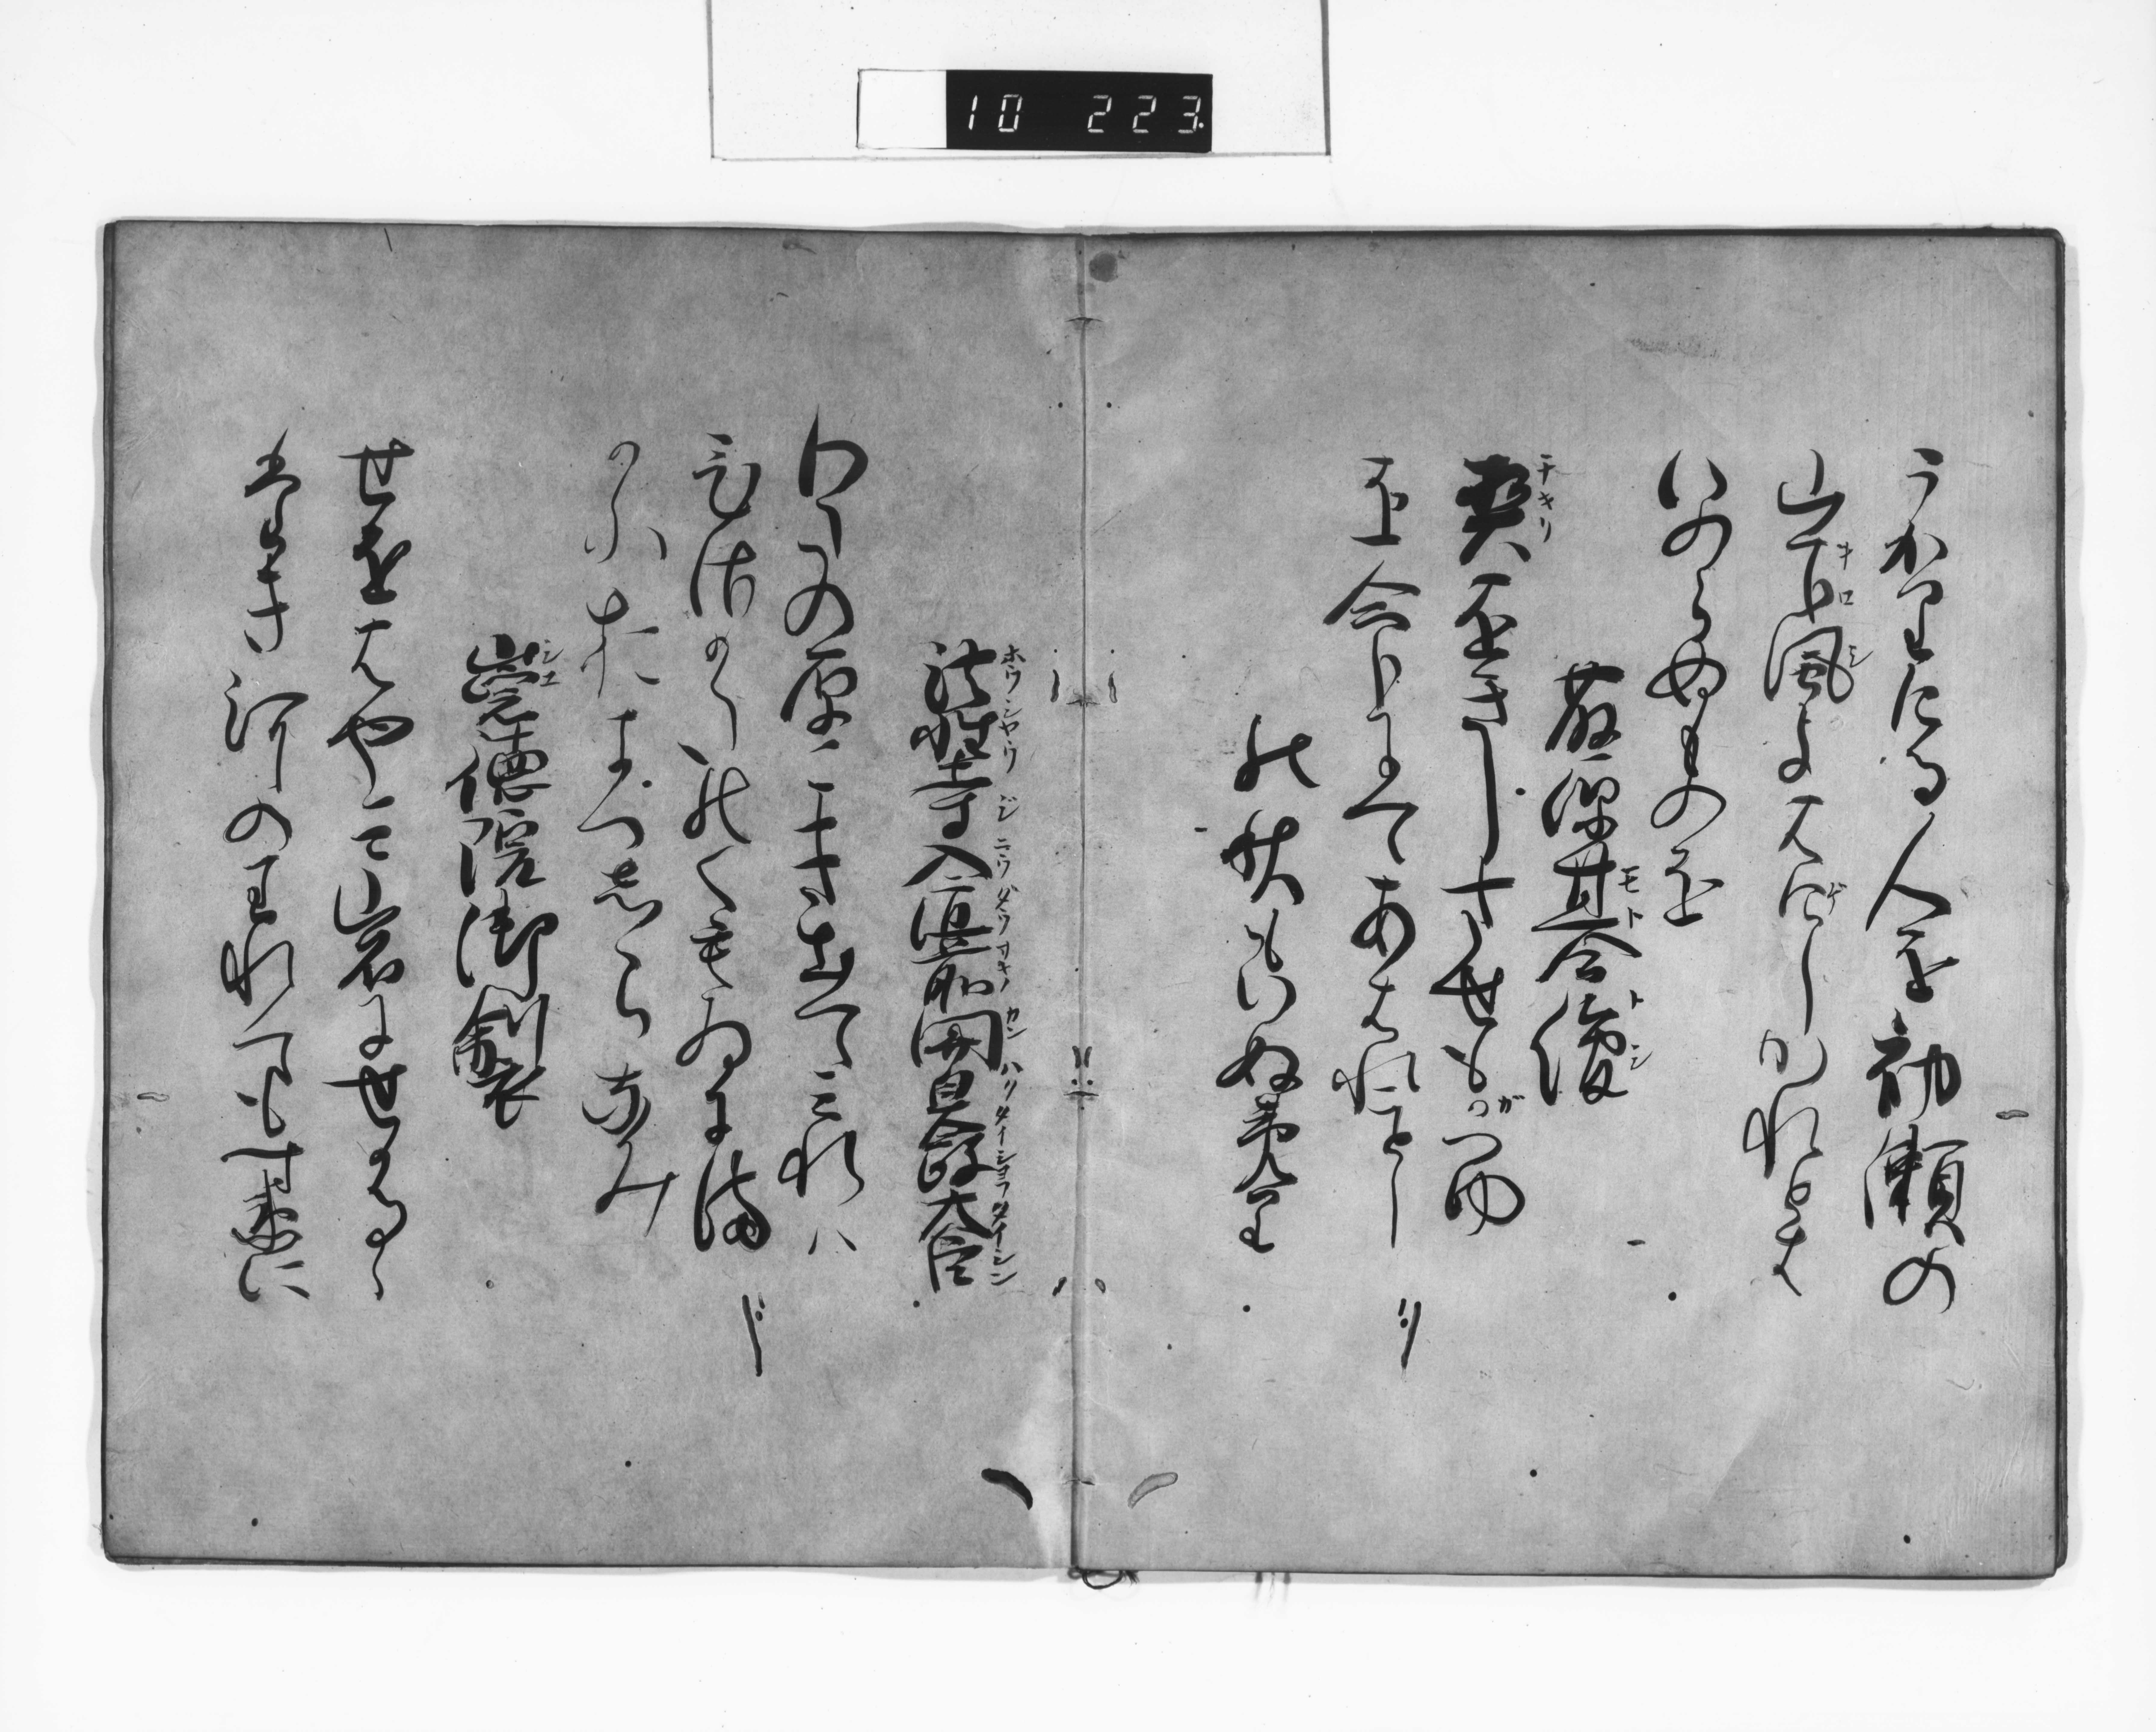 10 223
うかりける人を初瀬の
山下風よはけしかれとは
いのらぬものを
藤原基俊
契をきしさせもかつゆ
を命にてあはれことし
の秋もいぬめり
法性寺入道前関白太政大臣
わたの原こき出てみれは
ひさかたのくもゐにま
かふおきつしらなみ
崇徳院御製
せをはやみ岩にせかるゝ
たき河のわれても末に